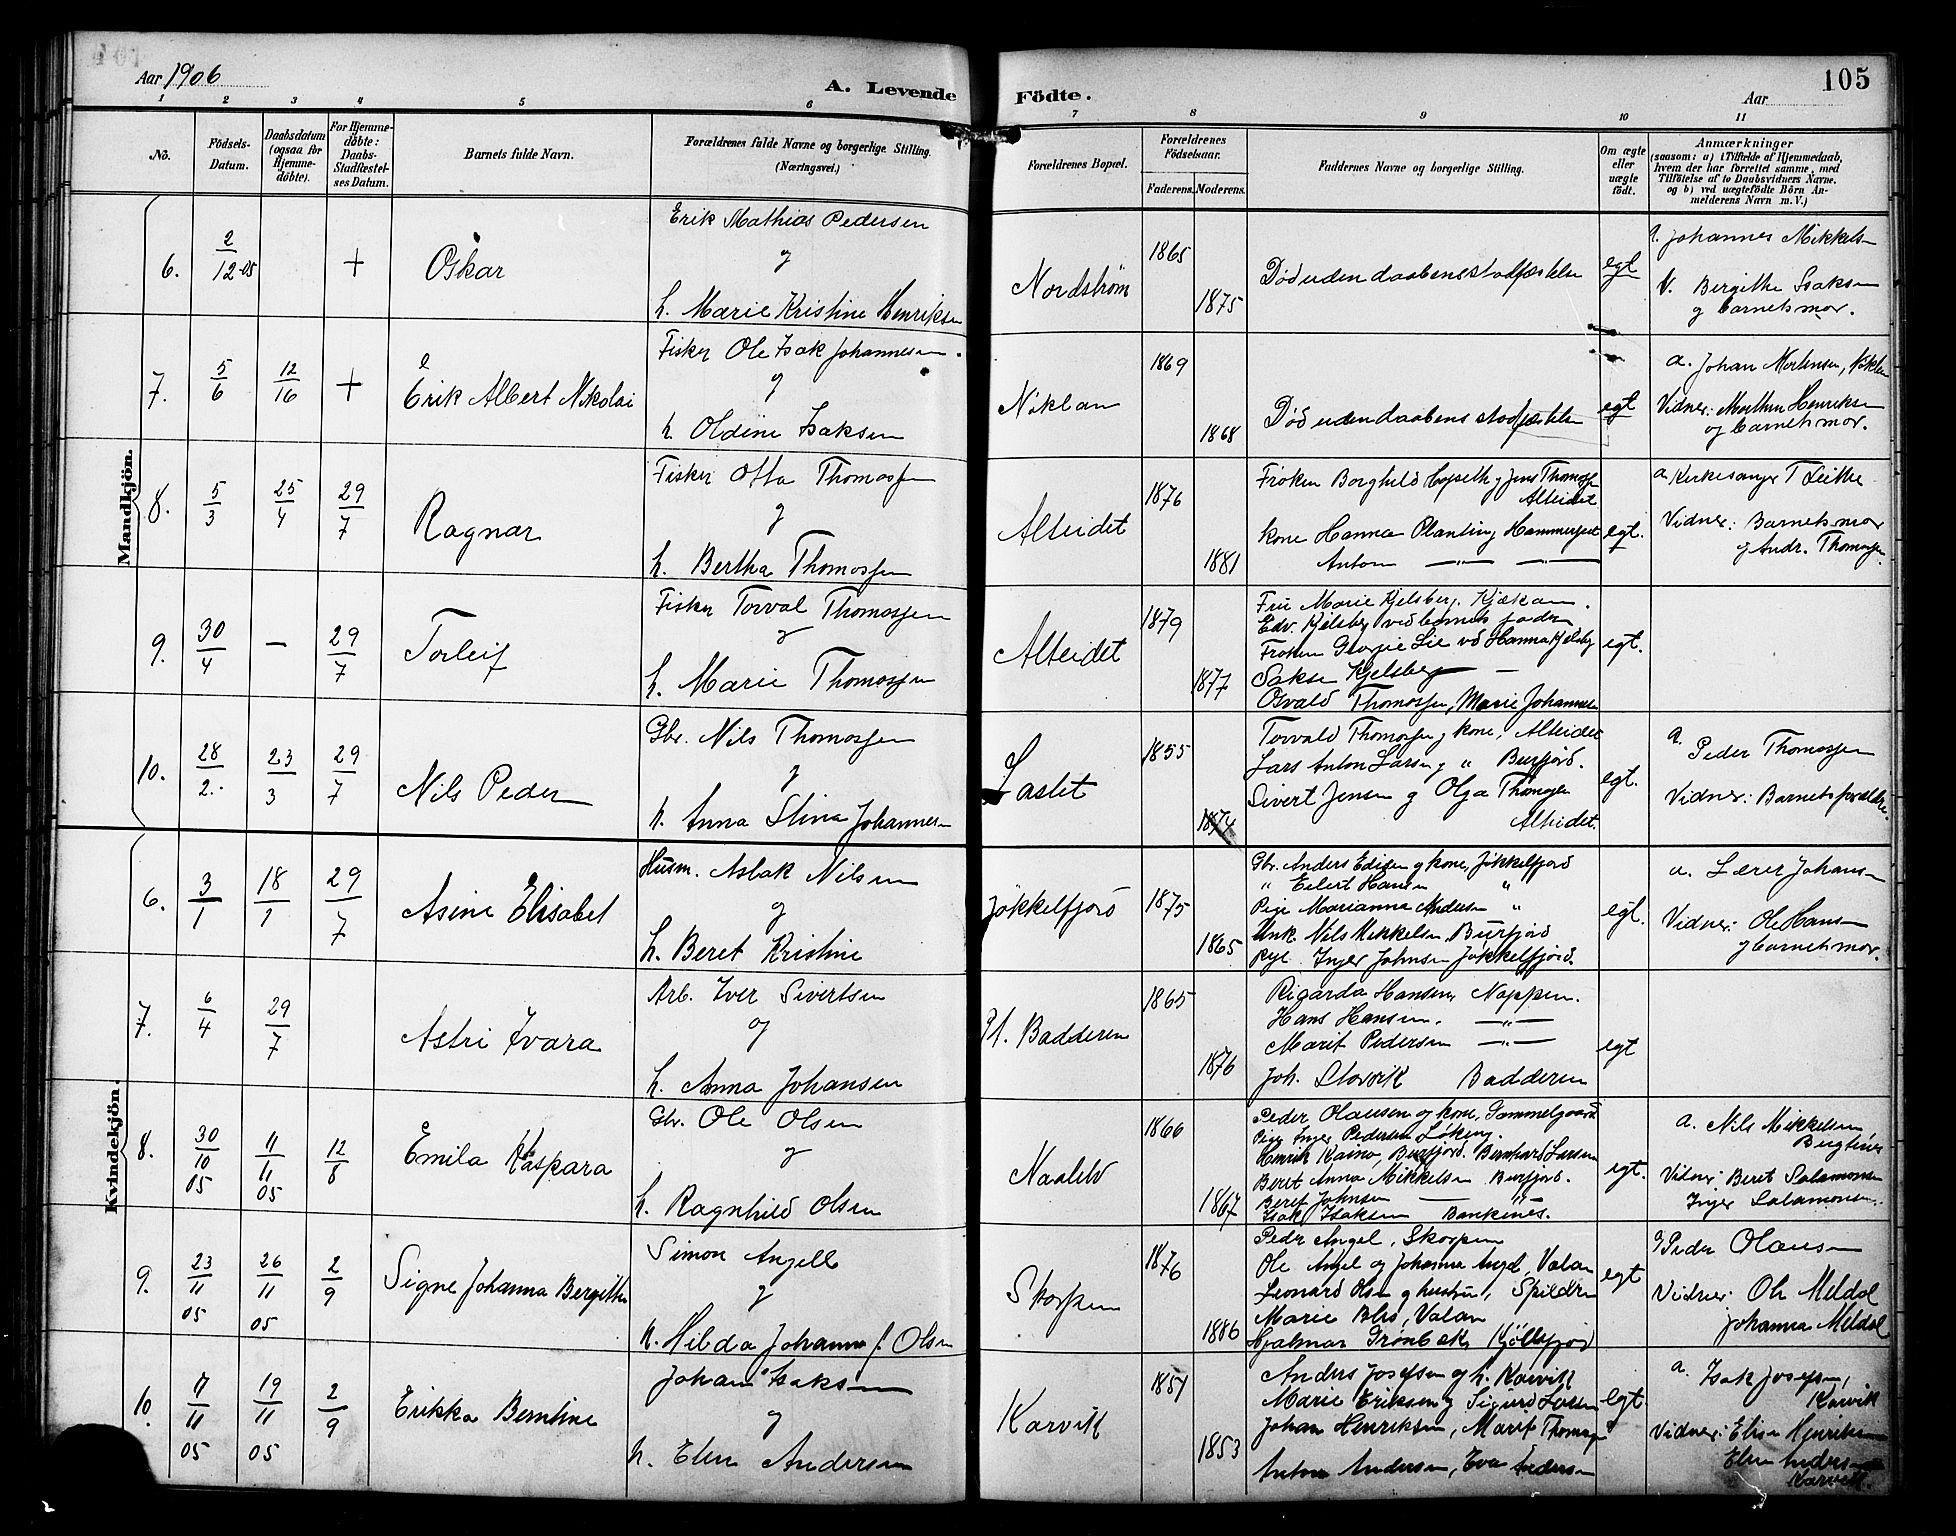 Aar 1906
A. Levende
Födte.
Aar
105
1 2 3 4 5 6 7 8 9 10 11
No.
Födsels-Datum.
Daabsdatum (ogsaa for Hjemme-döbte).
For Hjemme-döbte: Daabs-Stadfæstel-ses Datum.
Barnets fulde Navn.
Forældrenes fulde Navne og borgerlige Stilling. (Næringsvei.)
Forældrenes Bopæl.
Forældrenes Födselsaar.
Faderens. Moderens.
Faddernes Navne og borgerlige Stilling.
Om ægte eller uægte födt.
Anmærkninger
(saasom: a) i Tilfælde af Hjemmedaab, hvem der har forrettet samme, med Tilföielse af to Daabsvidners Navne, og b) ved uægtefödte Börn An-melderens Navn m. V.)
Mandkjön.
6. 2/12-05 + Oskar
Erik Mathias Pedersen
og
h. Marie Kristine Henriksen
Nordstrøm 1865 1875
Død uden daabens stadfæstelse
egt
Johannes Mikkelsen
V. Bergithe Isaksen
og barnets mor.
7. 5/6 12/16 + Erik Albert Nikolai
Fisker Ole Isak Johannesen
og
h. Oldine Isaksen
Niklan 1869 1868
Død uden daabens stadfæstelse
egt
a. Johan Mortensen,
Vidner: Marthin Henriksen
og barnets mor.
8. 5/3 25/4 29/7 Ragnar
Fisker Otto Thomassen
og
h. Bertha Thomassen
Alteidet 1876 1881
Frøken Borghild Hopseth og Jens Thomassen
Alteidet
kone Hanna Planting Hammerfest
Anton —"— —"—
egt.
a. Kirkesanger T
Vidner: Barnets mor
og Andr. Thomassen.
9. 30/4 — 29/7 Torleif
Fisker Torval Thomassen
og
h. Marie Thomassen
Alteidet 1879 1877
Fru Marie Kjelsberg, Kjækan.
Edv. Kjelsberg ved barnets fader
Frøken Georgie Lie vd Hanna Kjelsberg
Kjelsberg —
Osvald Thomassen, Marie Johannesen
egt.
10. 28/2 23/3 29/7 Nils Peder
Gbr. Nils Thomassen
og
h. Anna Stina Johannesen
Lastet 1855 1874
Torvald Thomassen og kone, Alteidet
Lars Anton Larsen og " Burfjord.
Sivert Jensen og Olga Thomassen
Alteidet.
egt.
a. Peder Thomassen
Vidner: Barnets forældre.
Kvindekjön.
6. 3/1 18/1 29/7 Asine Elisabet
Husm. Aslak Nilsen
og
h. Beret Kristine
Jøkkelfjord 1875 1865
Gbr. Anders Edisen og kone, Jøkkelfjord
" Eilert Hansen "
Pige Marianna Andersen "
Unk. Nils Mikkelsen, Burfjord
Pige Inger Johnsen Jøkkelfjord.
egt.
a. Lærer Johansen
Vidner: Ole Hansen
og barnets mor.
7. 6/4 29/7 Astri Ivara
Arb. Iver Sivertsen
og
h. Anna Johansen
Badderen 1865 1876
Rigarda Hansen, Nappen.
Hans Hansen. —"—
Marit Pedersen —"—
Joh. Storvik Badderen
egt
8. 30/10 05 11/11 05 12/8 Emila Kaspara
Gbr. Ole Olsen
og
h. Ragnhild Olsen
Naalelv 1866 1867
Peder Olaussen og kone, Gammelgaard
Pige Inger Pedersen Løkeng.
Henrik Kaino, Burfjord. Bernhard Larsen
Beret Anna Mikkelsen Burfjord.
Beret Johnsen — " —
Isak Isaksen Bankenes.
egt.
a. Nils Mikkelsen
Vidner: Beret Salamonsen
Inger Salamonsen.
9. 23/11 05 26/11 05 2/9 Signe Johanna Bergithe
Simon Angell
og
h. Hilda Johanna f. Olsen
Skorpen 1876 1886
Peder Angel, Skorpen
Ole Angel og Johanna Angel, Valan
Leonard Olsen og hustru, Spildren
Marie Blis, Valan
Hjalmar Grønbæk, Kjøllefjord
egt
Peder Olausen
Vidner: Ole Meldal
Johanna Meldal
10. 17/11 05 19/11 05 2/9 Erikka Berntine
Johan Isaksen
og
h. Elen Andersen
Karvik 1851 1853
Anders Josefsen og h. Karvik
Marie Eriksen og Sigurd Larsen
Johan Henriksen, Marit Thomassen
Anton Andersen, Eva Andersen
egt.
a. Isak Josefsen,
Karvik
Vidner: Elise Henriksen
Elen Andersen
Karvik.